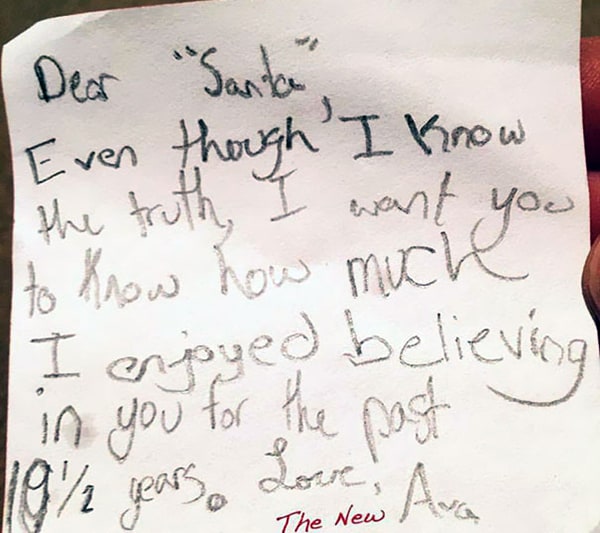 Dear "Santa",
Even though I know
the truth, I want you
to know how much
I enjoyed believing
in you for the past
10 1/2 years. Love, Ava
The New